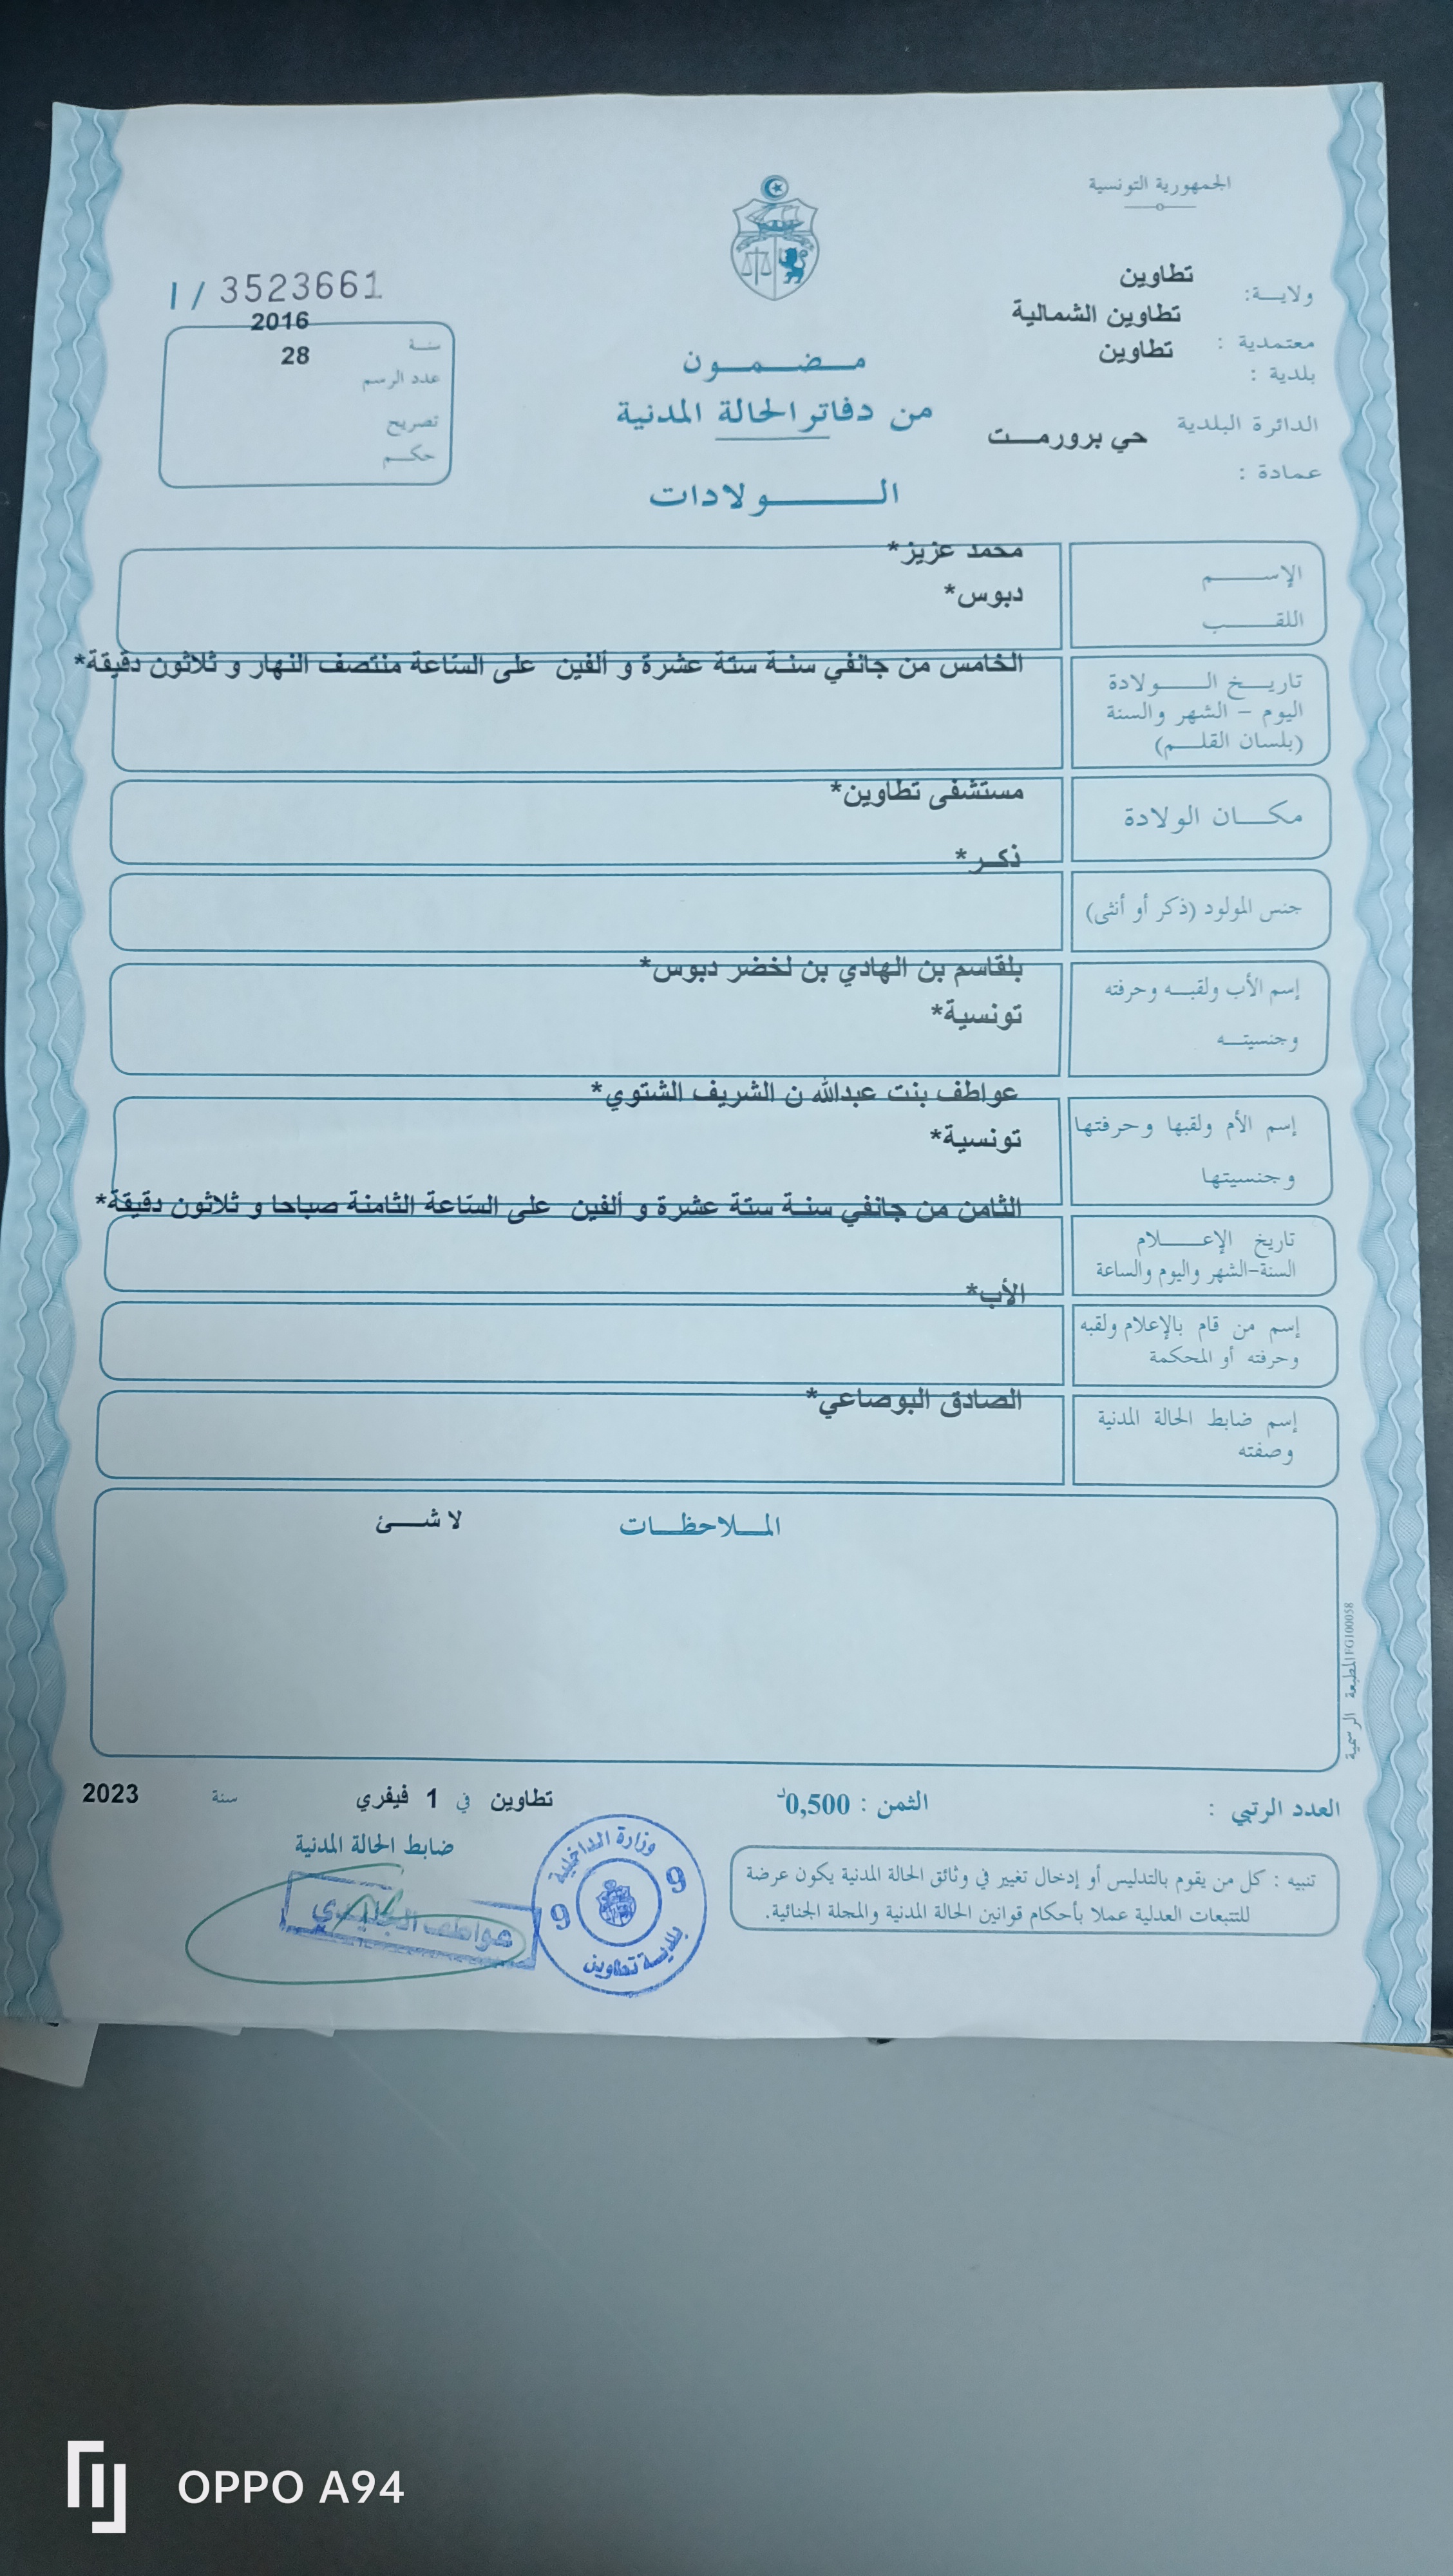 الجمهورية التونسية
ولايـــة: تطاوين
معتمدية : تطاوين الشمالية
بلدية : تطاوين
الدائرة البلدية حي برورمــت
عمادة :
I / 3523661
سنــة 2016
عدد الرسم 28
تصريح
حكــم
مــضــمــون
من دفاتر الحالة المدنية
الــــولادات
الإســـــم محمد عزيز*
اللقـــــب دبوس*
تاريــخ الــــولادة الخامس من جانفي سنـة ستة عشرة و ألفين على الساعة منتصف النهار و ثلاثون دقيقة*
اليوم – الشهر والسنة
(بلسان القلــم)
مكـــان الولادة مستشفى تطاوين*
جنس المولود (ذكر أو أنثى) ذكـر*
إسم الأب ولقبــه وحرفته بلقاسم بن الهادي بن لخضر دبوس*
وجنسيتــه تونسية*
إسم الأم ولقبها وحرفتها عواطف بنت عبدالله ن الشريف الشتوي*
وجنسيتها تونسية*
تاريخ الإعــــلام الثامن من جانفي سنـة ستة عشرة و ألفين على الساعة الثامنة صباحا و ثلاثون دقيقة*
السنة-الشهر واليوم والساعة
إسم من قام بالإعلام ولقبه الأب*
وحرفته أو المحكمة
إسم ضابط الحالة المدنية الصادق البوصاعي*
وصفته
المــلاحظــات لا شــئ
المطبعة الرسمية FG100058
العدد الرتبي :
الثمن : 0,500د
تطاوين في 1 فيفري سنة 2023
ضابط الحالة المدنية
عواطف
وزارة الداخلية
9 9
بلديـة تطاوين
تنبيه : كل من يقوم بالتدليس أو إدخال تغيير في وثائق الحالة المدنية يكون عرضة
للتتبعات العدلية عملا بأحكام قوانين الحالة المدنية والمجلة الجنائية.
OPPO A94